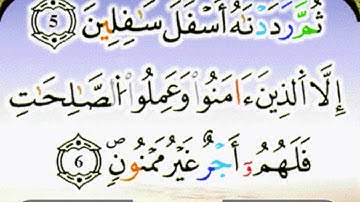 ثُمَّ رَدَدْنَـٰهُ أَسْفَلَ سَـٰفِلِينَ ۝5
إِلَّا ٱلَّذِينَ ءَامَنُوا۟ وَعَمِلُوا۟ ٱلصَّـٰلِحَـٰتِ
فَلَهُمْ أَجْرٌ غَيْرُ مَمْنُونٍ ۝6